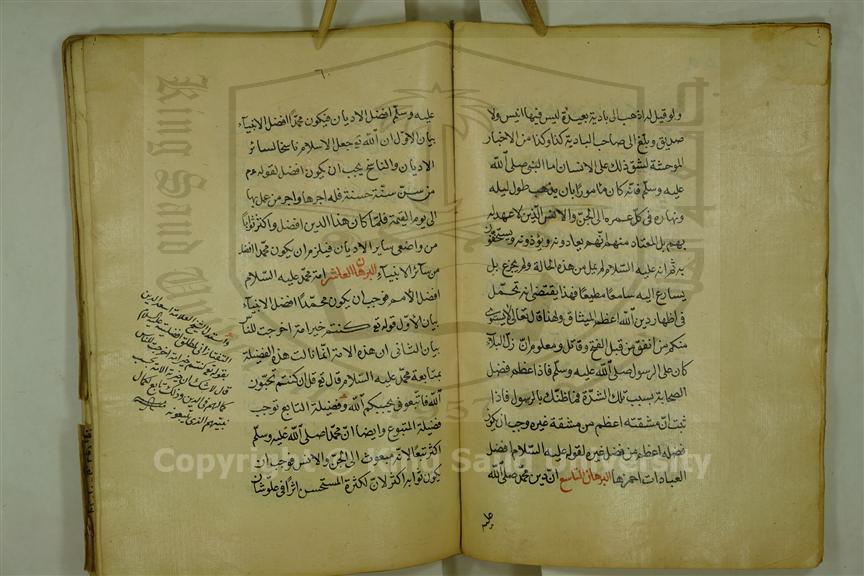 ولو قيل له اذهب الى بادية بعيدة ليس فيها انيس ولا
صديق وبلغ الى صاحب البادية كذا وكذا من الاخبار
الموحشة لشق ذلك على الانسان اما النبي صلى الله
عليه وسلم فانه كان مأمورا بان يذهب طول ليله
ونهاره في كل عمره الى الجن والانس الذين لا عهد له
بهم بل المعتاد منهم انهم يعادونه ويؤذونه ويستخفون
به ثم انه عليه السلام لم يمل من هذه الحالة ولم يجزع بل
يسارع اليه سامعا مطيعا فهذا يقتضي انه تحمل
في اظهار دين الله اعظم المشاق ولهذا قال تعالى لا يستوي
منكم من انفق من قبل الفتح وقاتل ومعلوم ان البلاء
كان على الرسول صلى الله عليه وسلم فاذا عظم فضل
الصحابة بسبب تلك الشدة فما ظنك بالرسول فاذا
ثبت ان مشقته اعظم من مشقة غيره وجب ان يكون
فضله اعظم من فضل غيره لقوله عليه السلام افضل
العبادات احمزها البرهان التاسع ان دين محمد صلى الله
عليه وسلم افضل الاديان فيكون محمد افضل الانبياء
بيان الاول ان الله تع جعل الاسلام ناسخا لسائر
الاديان والناسخ يجب ان يكون افضل لقوله عم
من سن سنة حسنة فله اجرها واجر من عمل بها
الى يوم القيمة فلما كان هذا الدين افضل واكثر ثوابا
من واضعي ساير الاديان فيلزم ان يكون محمد افضل
من سائر الانبياء البرهان العاشر امة محمد عليه السلام
افضل الامم فوجب ان يكون محمدا افضل الانبياء
بيان الاول قوله تع كنتم خير امة اخرجت للناس
بيان الثاني ان هذه الامة انما نالت هذه الفضيلة
بمتابعة محمد عليه السلام قال تع قل ان كنتم تحبون
الله فاتبعوني يحببكم الله وفضيلة التابع توجب
فضيلة المتبوع وايضا ان محمد صلى الله عليه وسلم
اكثر تبعا لانه مبعوث الى الجن والانس فوجب ان
يكون ثوابه اكثر لان لكثرة المستحسن اثرا في علو شان
الشيخ العلامة سعد الدين
التفتازاني
بقوله تع كنتم خير امة اخرجت للناس
قال لا شك ان خيرية الامة بحسب
كمالهم في الدين وذلك تابع لكمال
نبيهم الذي يتبعونه
Copyright © King Saud University
King Saud
1957